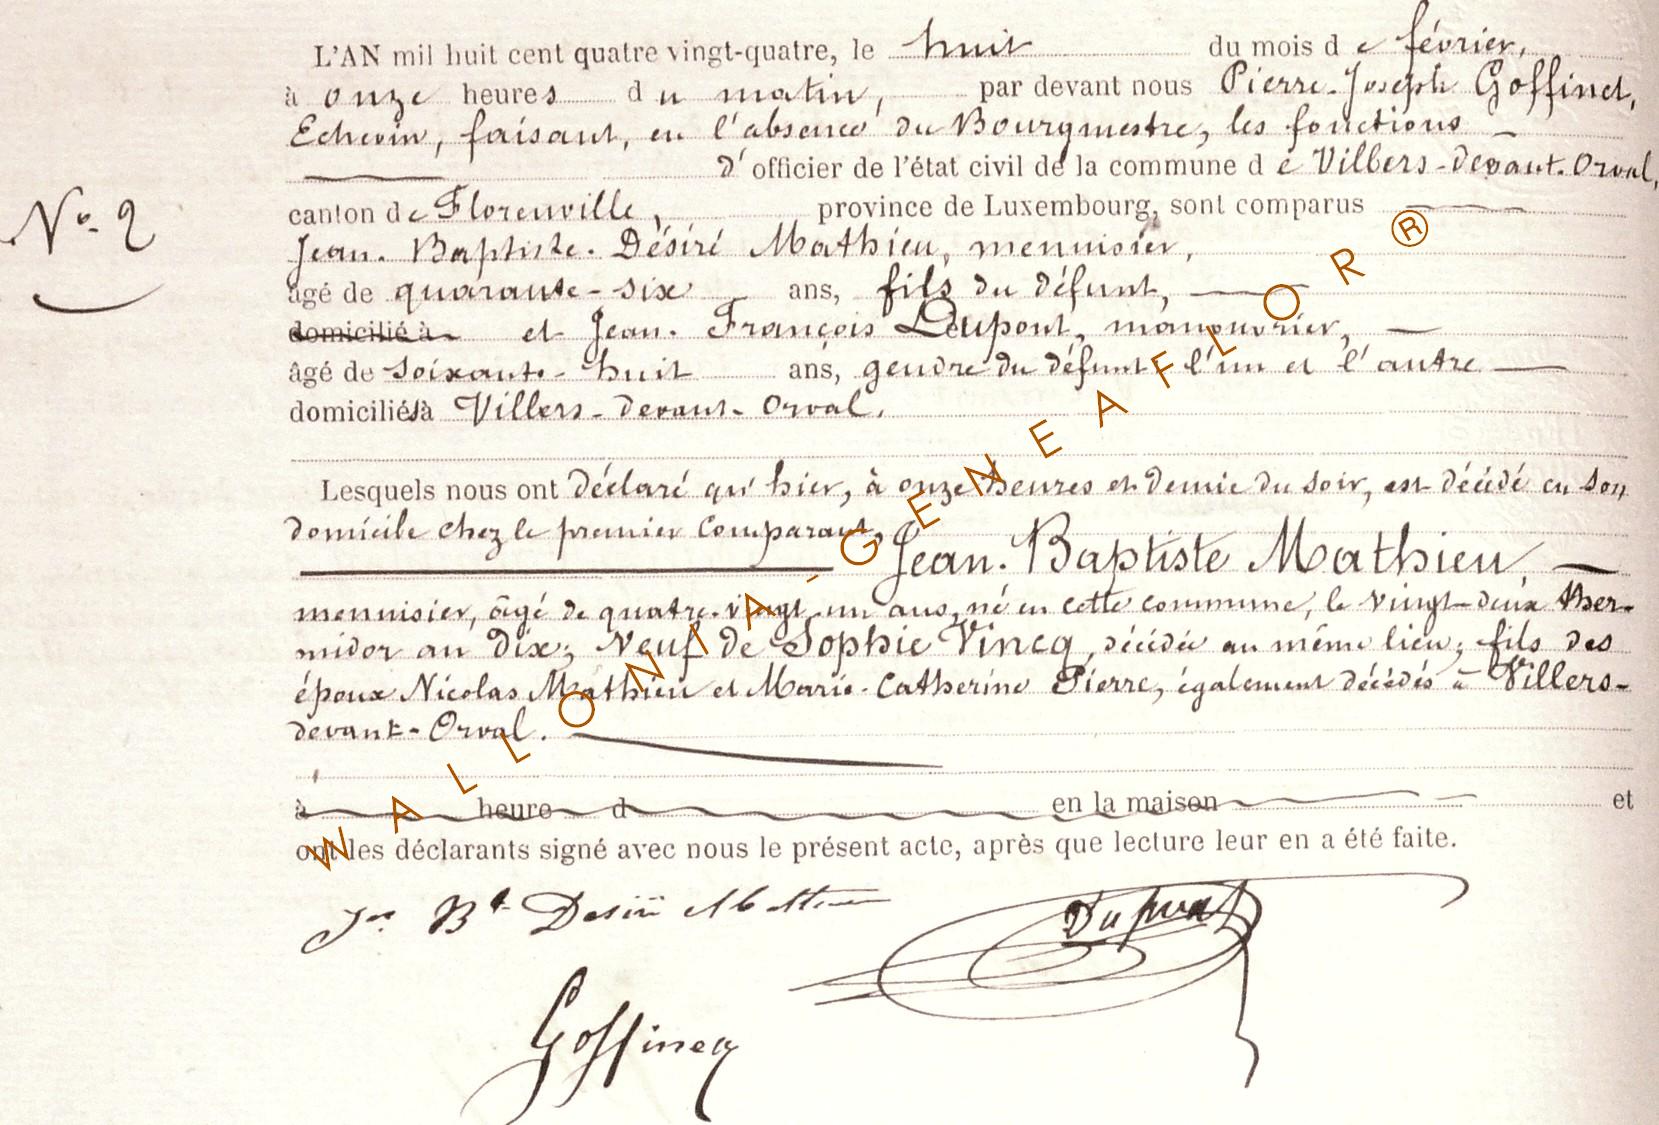 L'AN mil huit cent quatre vingt-quatre, le huit du mois de février,
à onze heures du matin, par devant nous Pierre-Joseph Goffinet,
Echevin, faisant, en l'absence du Bourgmestre, les fonctions
d'officier de l'état civil de la commune de Villers-devant-Orval,
canton de Florenville, province de Luxembourg, sont comparus
N° 2
Jean-Baptiste-Désiré Mathieu, menuisier,
âgé de quarante-six ans, fils du défunt,
domicilié à et Jean-François Dupont, manouvrier,
âgé de soixante-huit ans, gendre du défunt l'un et l'autre
domiciliés à Villers-devant-Orval.
Lesquels nous ont déclaré qu'hier, à onze heures et demie du soir, est décédé en son
domicile chez le premier comparant,
Jean-Baptiste Mathieu,
menuisier, âgé de quatre-vingt-un ans, né en cette commune, le vingt-deux ther-
midor an dix; Veuf de Sophie Vincq, décédée au même lieu; fils des
époux Nicolas Mathieu et Marie-Catherine Pierre, également décédés à Villers-
devant-Orval.
à heure d en la maison et
ont les déclarants signé avec nous le présent acte, après que lecture leur en a été faite.
Jn Bt Desiré Mathieu
Dupont
Goffinet
WALLONIA-GENEAFLOR®